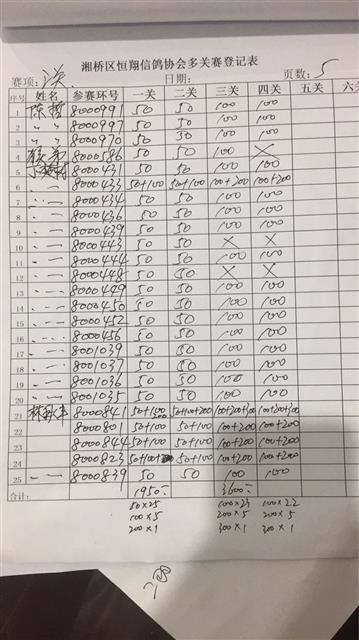 湘桥区恒翔信鸽协会多关赛登记表
赛项: 决 日期: 页数: 5
序号 姓名 参赛环号 一关 二关 三关 四关 五关 六
1 陈哲 8000991 50 50 100 100
2 〃 〃 8000997 50 50 100 100
3 〃 〃 8000970 50 50 100 100
4 8000586 50 50 100 ×
5 8000431 50 50 100 100
6 8000433 50+100 50+100 100+200 100+200
7 8000434 50 50 100 100
8 8000436 50 50 100 100
9 8000439 50 50 100 100
10 8000443 50 50 × ×
11 8000444 50 50 100 100
12 8000448 50 50 × ×
13 8000449 50 50 100 100
14 8000450 50 50 100 100
15 8000452 50 50 100 100
16 8000456 50 50 100 100
17 8001039 50 50 100 100
18 8001037 50 50 100 100
19 8001036 50 50 100 100
20 8001035 50 50 100 100
21 8000841 50+100 200 50+100+200 100+200+300 100+200+300
22 8000801 50+100 50+100 100+200 100+200
23 8000844 50+100 50+100 100+200 100+200
24 8000823 50+100 50+100 100+200 100+200
25 8000839 50 50 100 100
合计: 1950 3600
50×25 100×23 100×22
100×5 200×5 200×5
200×1 300×1 300×1